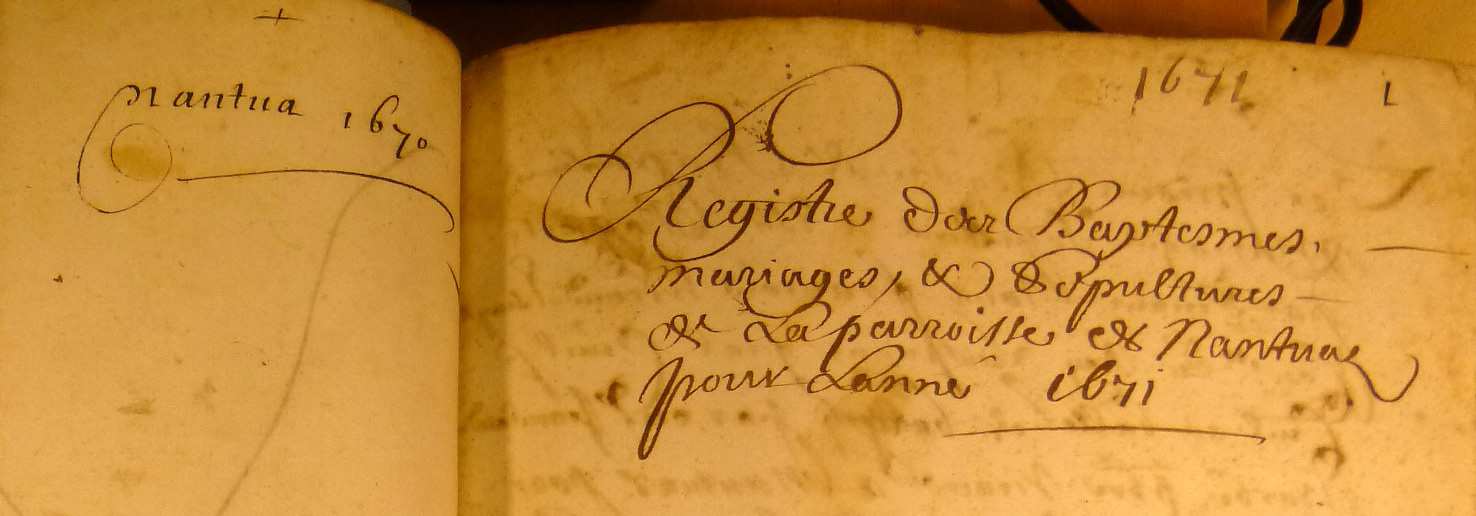 Nantua 1670
1671 1
Registre des Baptesmes,
mariages, & Sepultures
de La parroisse de Nantua
pour Lanneé 1671